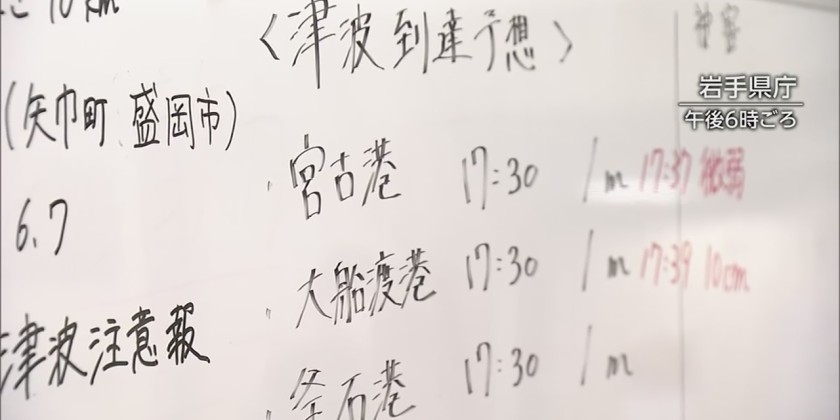 10km
(矢巾町 盛岡市)
6.7
津波注意報
〈津波到達予想〉
宮古港 17:30 1m 17:37 微弱
大船渡港 17:30 1m 17:39 10cm
釜石港 17:30 1m
岩手県庁
午後6時ごろ